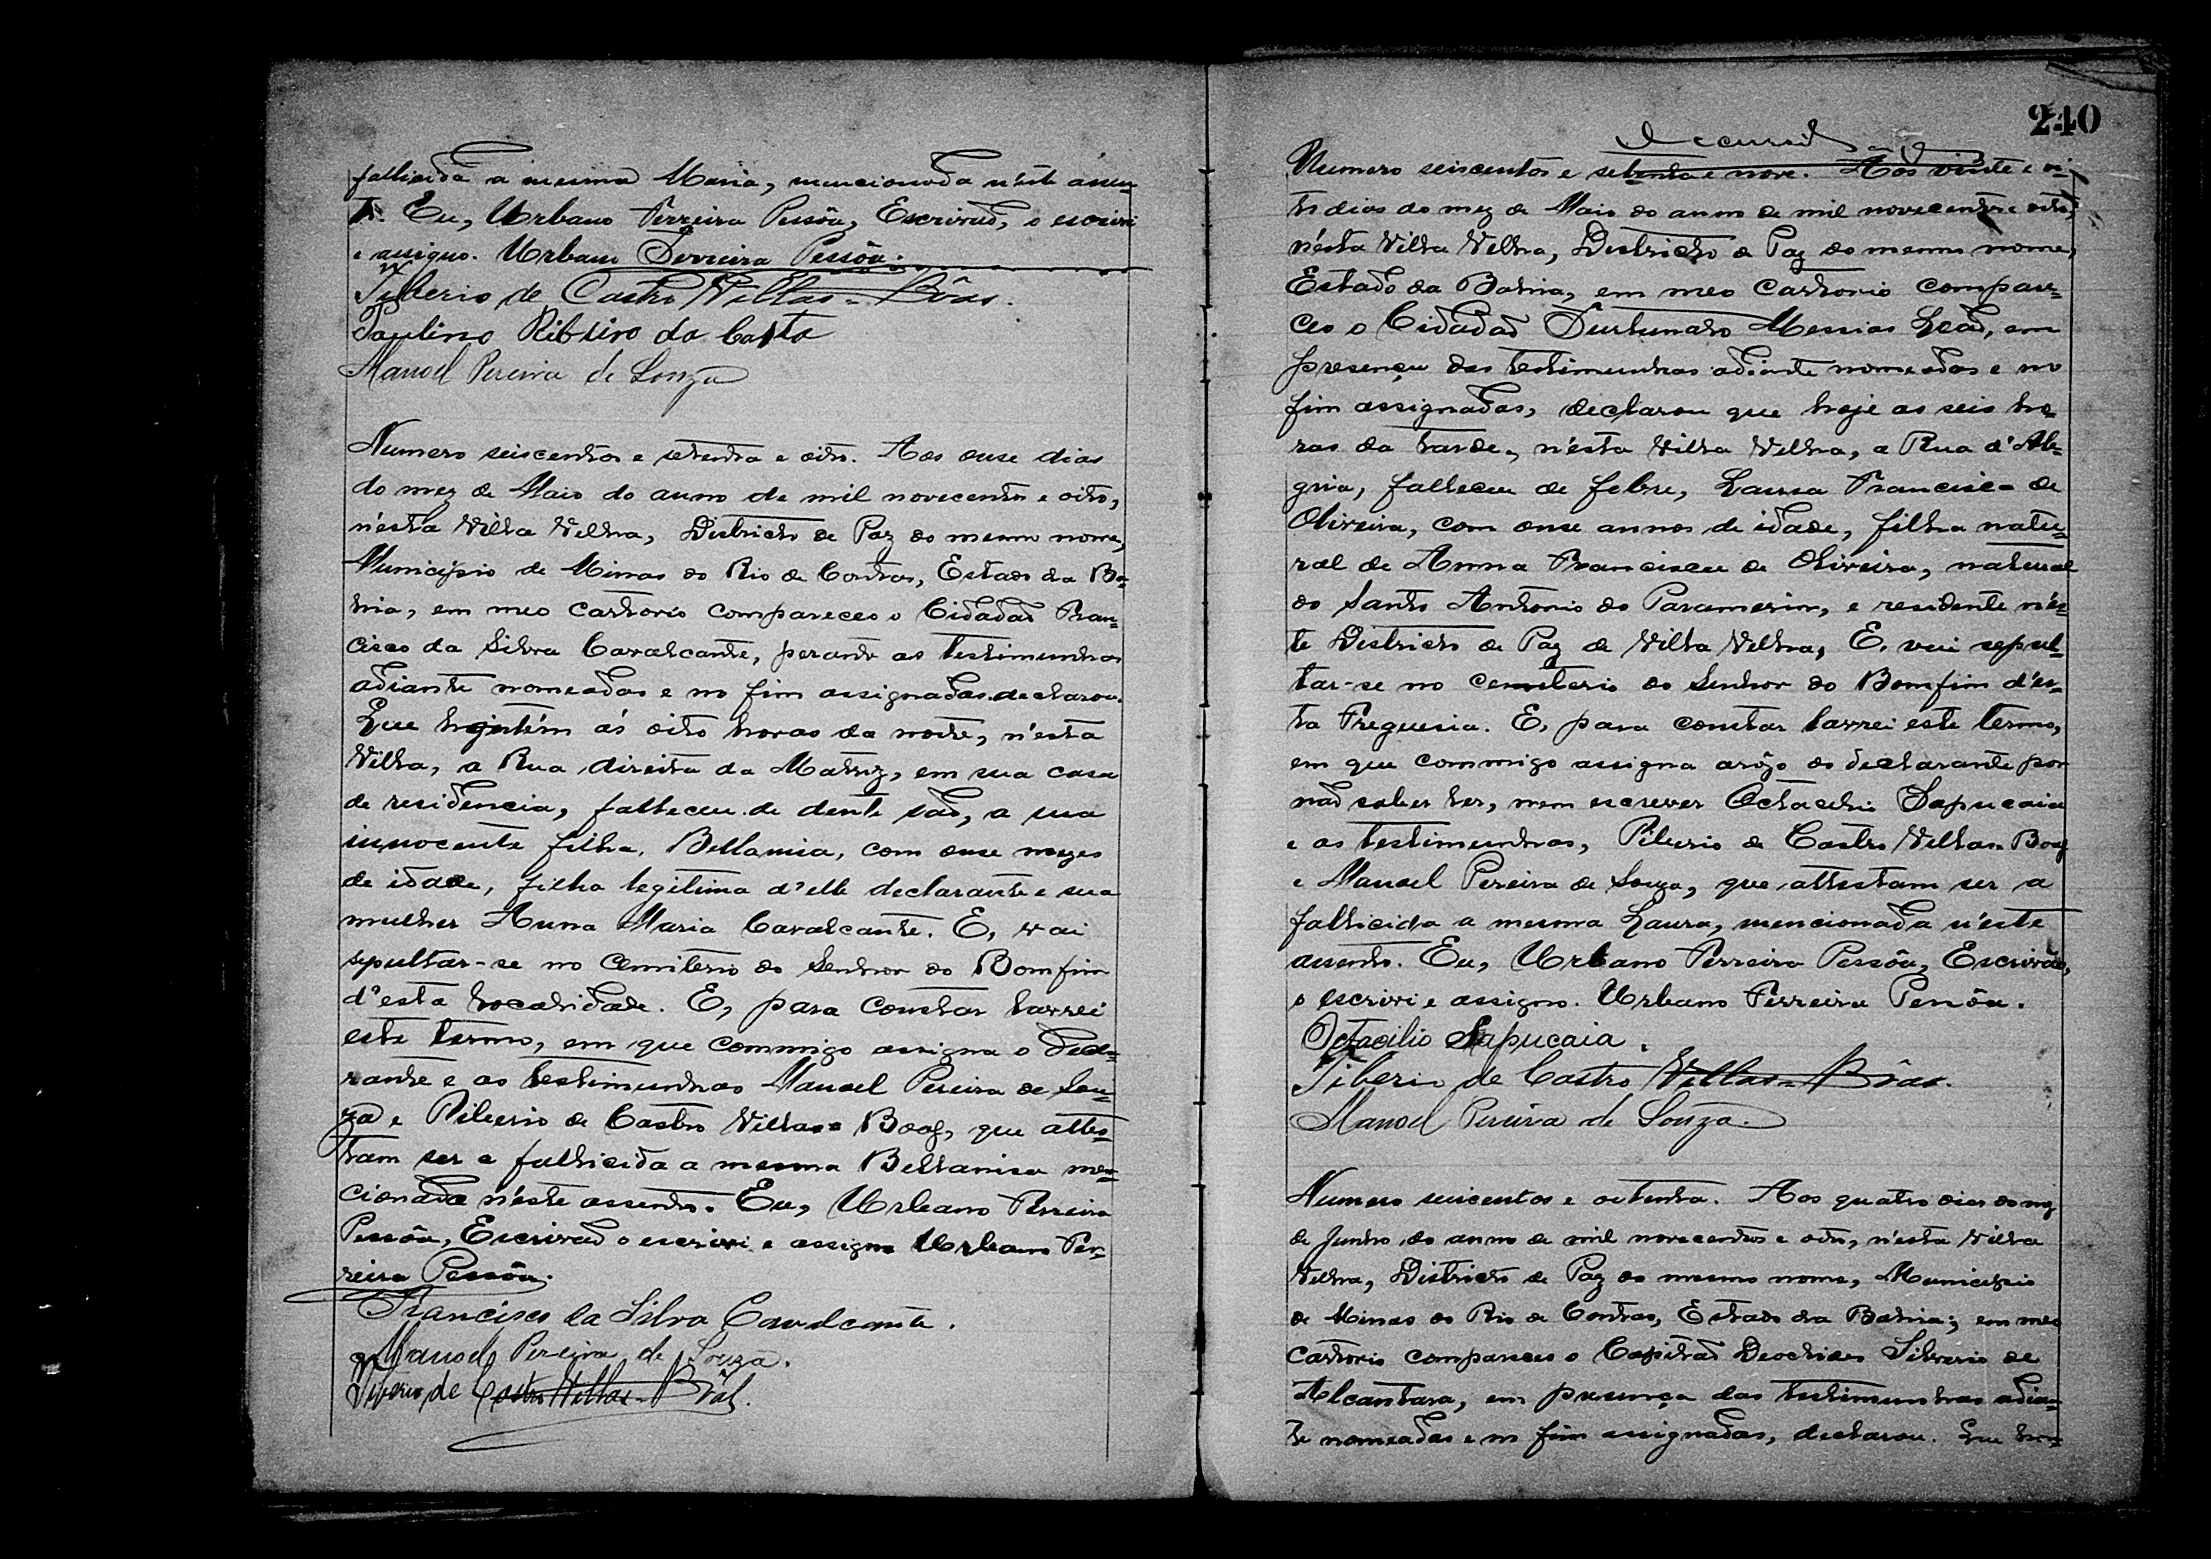 fallicida a mesma Maria, mencionada n'este assen-
to. Eu, Urbano Ferreira Pessôa, Escrivão, o escrivi
e assigno. Urbano Ferreira Pessôa.
Tiberio de Castro Villas-Bôas.
Paulino Ribeiro da Costa
Manoel Pereira de Souza
Numero seiscentos e setenta e oito. Aos onse dias
do mez de Maio do anno de mil novecentos e oito,
n'esta Villa Velha, Districto de Paz do mesmo nome,
Municipio de Minas do Rio de Contas, Estado da Ba-
hia, em meo cartorio compareceo o Cidadão Fran-
cisco da Silva Cavalcante, perante as testimunhas
adiante nomeadas e no fim assignadas declarou.
Que hontém ás oito horas da noite, n'esta
Villa, a Rua direita da Matriz, em sua casa
de residencia, falleceu de dentesão, a sua
innocente filha, Bellamia, com onse mezes
de idade, filha legitima d'elle declarante e sua
mulher Anna Maria Cavalcante. E, vai
sepultar-se no Cemiterio do Senhor do Bomfim
d'esta localidade. E, para constar larrei
este termo, em que commigo assigna o decla-
rante e as testimunhas Manoel Pereira de Sou-
za e Tiberio de Castro Villas-Boas, que attes-
tam ser a fallicida a mesma Bellamia men-
cionada n'este assento. Eu, Urbano Ferreira
Pessôa, Escrivão o escrivi e assigno Urbano Fer-
reira Pessôa.
Francisco da Silva Cavalcante.
Manoel Pereira de Souza.
Tiberio de Castro Villas-Bôas.
240
Numero seiscentos e setenta e nove. Aos vinte e oi-
to dias do mez de Maio do anno de mil novecentos e oito,
n'ésta Villa Velha, Districto de Paz do mesmo nome,
Estado da Bahia, em meo Cartorio compare-
ceo o Cidadão Furtunato Messias Leão, em
presença das testimunhas adiante nomeadas e no
fim assignadas, declarou que hoje as seis ho-
ras da tarde, n'ésta Villa Velha, a Rua d'Ale-
gria, falleceu de febre, Laura Francisca de
Oliveira, com onse annos de idade, filha natu-
ral de Anna Francisca de Oliveira, natural
do Santo Antonio do Paramerim, e residente n'és-
te Districto de Paz de Villa Velha, E, vai sepul-
tar-se no cemiterio do Senhor do Bomfim d'és-
ta Freguesia. E, para constar larrei este termo,
em que commigo assigna arôgo do declarante por
não saber ler, nem escrever Octacilio Sapucaia
e as testimunhas, Tiberio de Castro Villas-Boas
e Manoel Pereira de Souza, que attestam ser a
fallicida a mesma Laura, mencionada n'éste
assento. Eu, Urbano Ferreira Pessôa, Escrivão,
o escrivi e assigno. Urbano Ferreira Pessôa.
Octacilio Sapucaia.
Tiberio de Castro Villas-Bôas.
Manoel Pereira de Souza.
Numero seiscentos e oitenta. Aos quatro dias do mez
de Junho do anno de mil novecentos e oito, n'ésta Villa
Velha, Districto de Paz do mesmo nome, Municipio
de Minas do Rio de Contas, Estado da Bahia; em meo
Cartorio compareceo o Capitão Silverio de
Alcantara, em presença das testimunhas adian-
te nomeadas e no fim assignadas, declarou. Que hon-